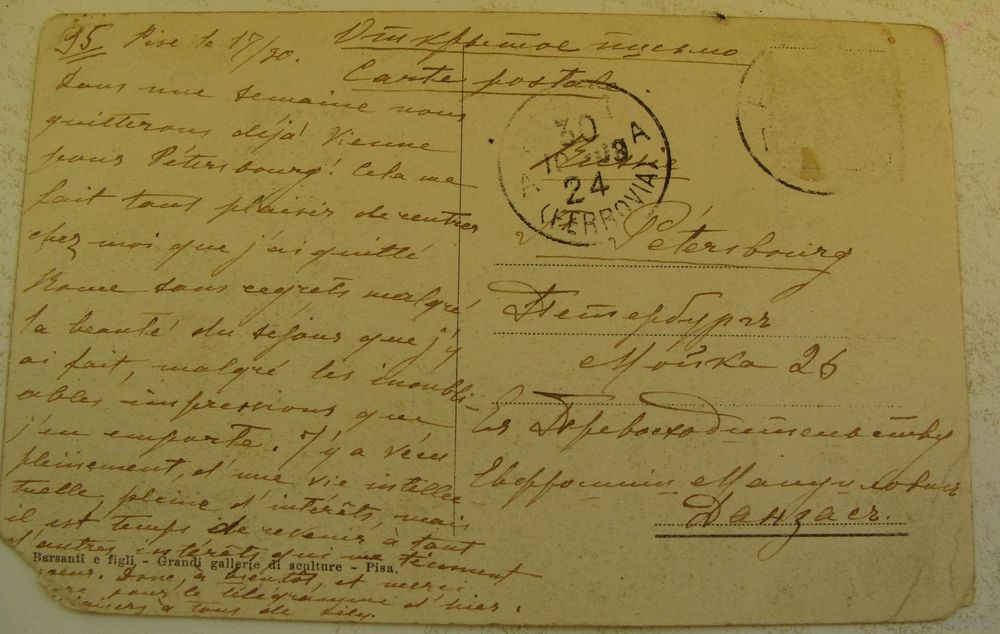 95 Pise le 17/30.
Dans une semaine nous
quitterons déjà Vienne
pour Pétersbourg! Cela me
fait tant plaisir de rentrer
chez moi que j'ai quitté
Rome sans regrets malgré
la beauté du séjour que j'y
ai fait, malgré les inoubli-
ables impressions que
j'en emporte. J'y ai vécu
pleinement, d'une vie intellec
tuelle, pleine d'intérêts, mais
il est temps de revenir à tant
d'autres intérêts qui me tiennent
coeur. Donc, à bientôt, et merci
pour le télégramme d'hier.
à tous de
Barsanti e figli - Grandi gallerie di sculture - Pisa.
Открытое письмо
Carte postale.
30
A A
24
(FERROVIA)
Pétersbourg
Петербургъ
Мойка 26
Ея Превосходительству
Данзасъ.